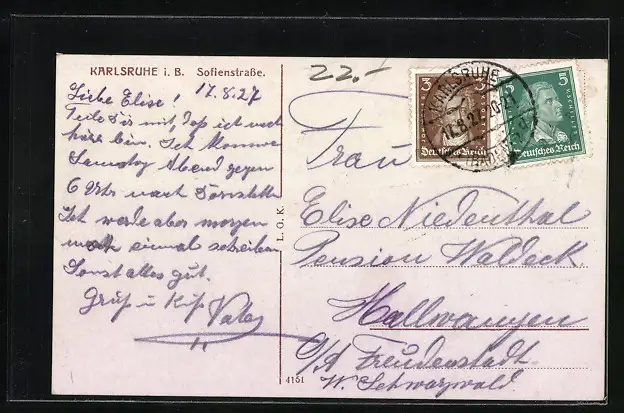 KARLSRUHE i. B. Sofienstraße.
17.8.27
Liebe Elise!
Teile Dir mit, daß ich noch
hier bin. Ich komme
Samstag Abend gegen
6 Uhr nach
Ich werde aber morgen
noch einmal schreiben
Sonst alles gut.
Gruß u. Kuß Vater
L. O. K.
4151
22.-
3 3
Deutsches Reich
5
Deutsches Reich
KARLSRUHE
17.8.27
(BADEN)
Frau
Elise Niedenthal
Pension Waldeck.
Hallwangen
O/A Freudenstadt.
W. Schwarzwald.